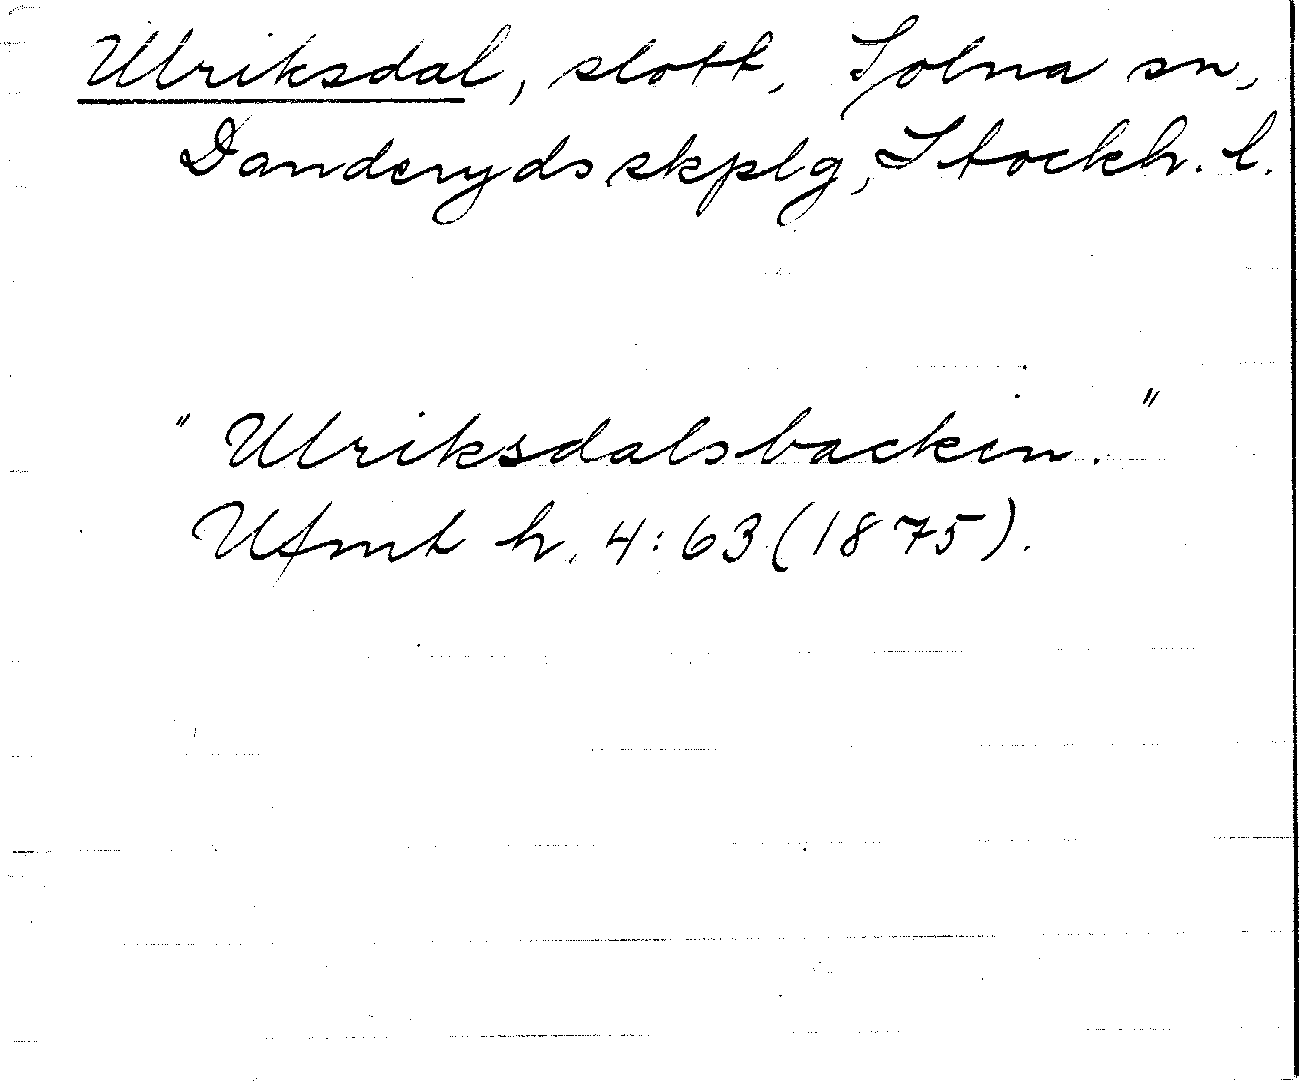 Ulriksdal, slott, Solna sn,
Danderyds skplg, Stockh. l.
"Ulriksdalsbacken."
Ufmt h. 4:63 (1875).